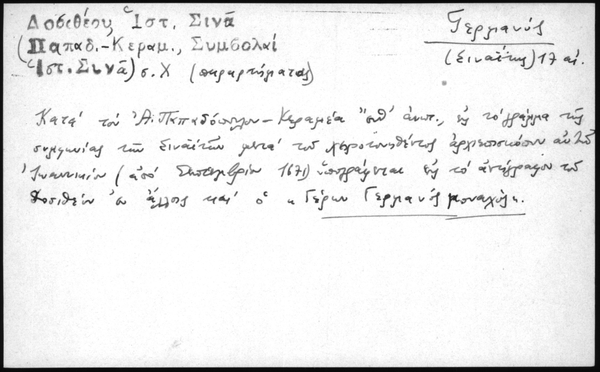 Δοσιθέου, Ἱστ. Σινᾶ
(Παπαδ.-Κεραμ., Συμβολαί
Ἱστ. Σινᾶ) σ. Χ (παραρτήματος)
Γερμανός
(Σιναΐτης) 17 αἰ.
Κατά τόν Ἀ. Παπαδόπουλον-Κεραμέα ἀνωτ., εἰς τό γράμμα τῆς
συμφωνίας τῶν Σιναϊτῶν μετά τοῦ χειροτονηθέντος ἀρχιεπισκόπου αὐτῶν
Ἰωαννικίου (ἀπό Σεπτεμβρίου 1671) ὑπογράφεται εἰς τό ἀντίγραφον τοῦ
Δοσιθέου ἄλλοις καί ὁ «Γέρων Γερμανός μοναχός».